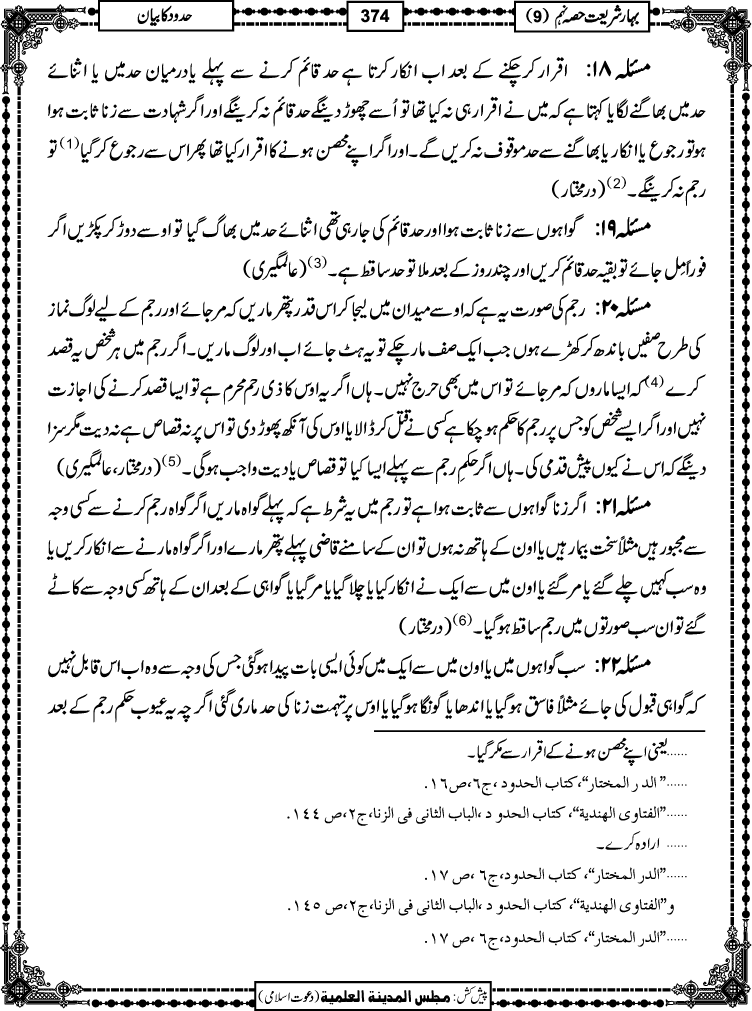 بہار شریعت حصہ نہم (9)
374
حدود کا بیان
مسئلہ ۱۸: اقرار کر چکنے کے بعد اب انکار کرتا ہے حد قائم کرنے سے پہلے یا درمیان حد میں یا اثنائے
حد میں بھاگنے لگا یا کہتا ہے کہ میں نے اقرار ہی نہ کیا تھا تو اُسے چھوڑ دینگے حد قائم نہ کرینگے اور اگر شہادت سے زنا ثابت ہوا
ہو تو رجوع یا انکار یا بھاگنے سے حد موقوف نہ کریں گے۔ اور اگر اپنے محصن ہونے کا اقرار کیا تھا پھر اس سے رجوع کر گیا (1) تو
رجم نہ کرینگے۔ (2) (درمختار)
مسئلہ ۱۹: گواہوں سے زنا ثابت ہوا اور حد قائم کی جارہی تھی اثنائے حد میں بھاگ گیا تو اوسے دوڑ کر پکڑیں اگر
فوراً مِل جائے تو بقیہ حد قائم کریں اور چند روز کے بعد ملا تو حد ساقط ہے۔ (3) (عالمگیری)
مسئلہ ۲۰: رجم کی صورت یہ ہے کہ اوسے میدان میں لیجا کر اس قدر پتھر ماریں کہ مر جائے اور رجم کے لیے لوگ نماز
کی طرح صفیں باندھ کر کھڑے ہوں جب ایک صف مار چکے تو یہ ہٹ جائے اب اور لوگ ماریں۔ اگر رجم میں ہر شخص یہ قصد
کرے (4) کہ ایسا ماروں کہ مر جائے تو اس میں بھی حرج نہیں۔ ہاں اگر یہ اوس کا ذی رحم محرم ہے تو ایسا قصد کرنے کی اجازت
نہیں اور اگر ایسے شخص کو جس پر رجم کا حکم ہو چکا ہے کسی نے قتل کر ڈالا یا اوس کی آنکھ پھوڑ دی تو اس پر نہ قصاص ہے نہ دیت مگر سزا
دینگے کہ اس نے کیوں پیش قدمی کی۔ ہاں اگر حکمِ رجم سے پہلے ایسا کیا تو قصاص یا دیت واجب ہوگی۔ (5) (درمختار، عالمگیری)
مسئلہ ۲۱: اگر زنا گواہوں سے ثابت ہوا ہے تو رجم میں یہ شرط ہے کہ پہلے گواہ ماریں اگر گواہ رجم کرنے سے کسی وجہ
سے مجبور ہیں مثلاً سخت بیمار ہیں یا اون کے ہاتھ نہ ہوں تو ان کے سامنے قاضی پہلے پتھر مارے اور اگر گواہ مارنے سے انکار کریں یا
وہ سب کہیں چلے گئے یا مر گئے یا اون میں سے ایک نے انکار کیا یا چلا گیا یا مر گیا یا گواہی کے بعد ان کے ہاتھ کسی وجہ سے کاٹے
گئے تو ان سب صورتوں میں رجم ساقط ہو گیا۔ (6) (درمختار)
مسئلہ ۲۲: سب گواہوں میں یا اون میں سے ایک میں کوئی ایسی بات پیدا ہو گئی جس کی وجہ سے وہ اب اس قابل نہیں
کہ گواہی قبول کی جائے مثلاً فاسق ہو گیا یا اندھا یا گونگا ہو گیا یا اوس پر تہمت زنا کی حد ماری گئی اگرچہ یہ عیوب حکم رجم کے بعد
......یعنی اپنے محصن ہونے کے اقرار سے مکر گیا۔
......”الدر المختار“، کتاب الحدود، ج٦، ص١٦.
......”الفتاوی الهندیة“، کتاب الحدود، الباب الثانی فی الزنا، ج٢، ص ١٤٤.
...... ارادہ کرے۔
......”الدر المختار“، کتاب الحدود، ج٦، ص ١٧.
و”الفتاوی الهندیة“، کتاب الحدود، الباب الثانی فی الزنا، ج٢، ص ١٤٥.
......”الدر المختار“، کتاب الحدود، ج٦، ص ١٧.
پیش کش: مجلس المدینة العلمیة (دعوت اسلامی)